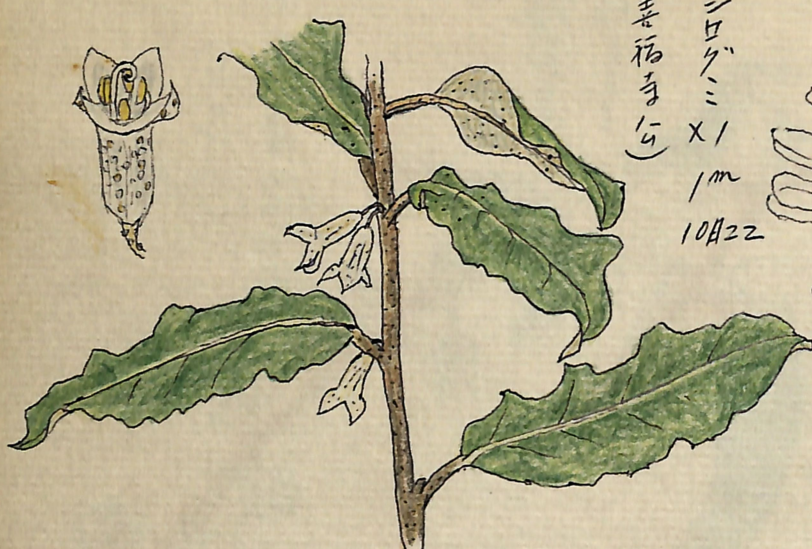 シログミ
×1
1m
10月22
喜福寺公)